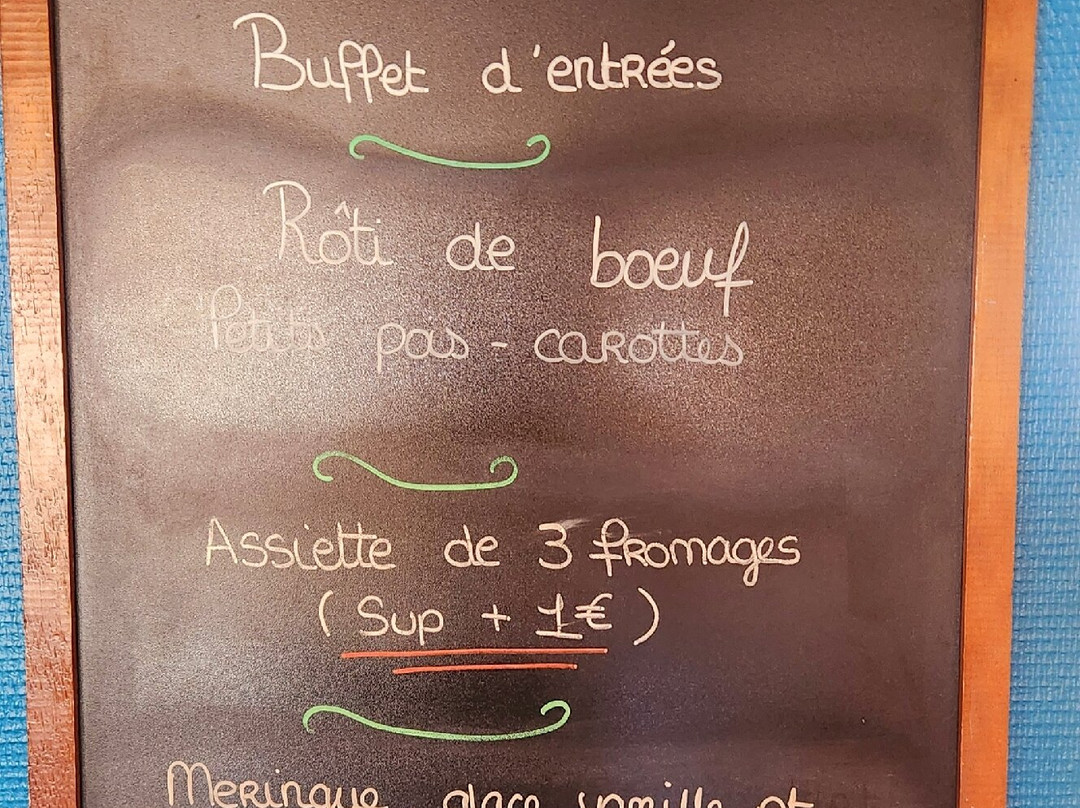 Buffet d'entrées
Rôti de boeuf
Petits pois - carottes
Assiette de 3 fromages
(Sup + 1€)
Meringue glace vanille et